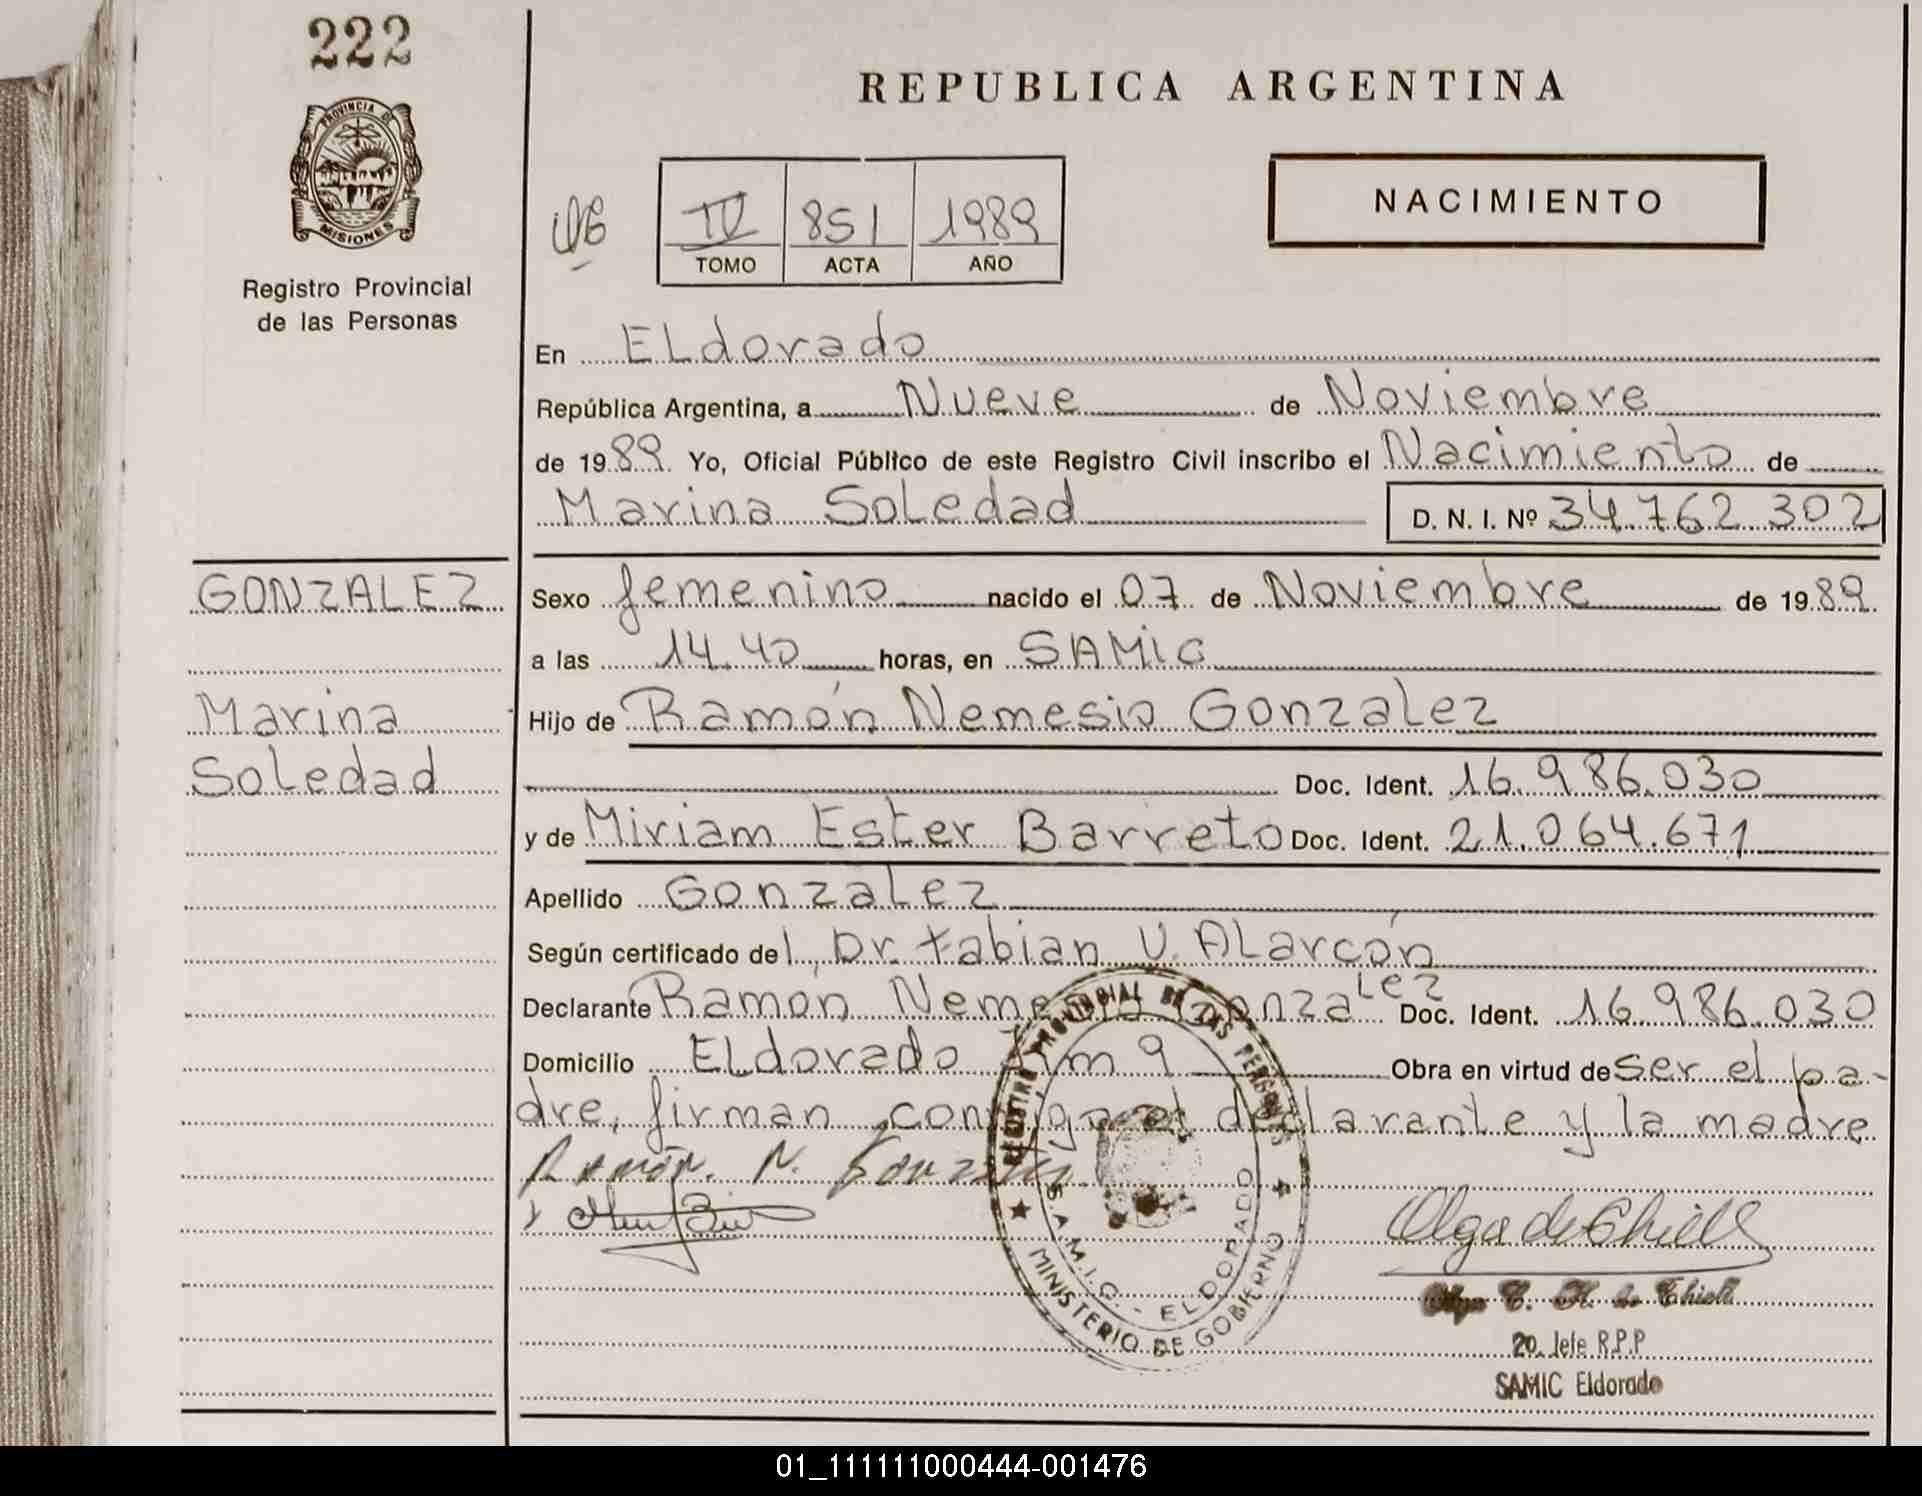 222
PROVINCIA DE
MISIONES
Registro Provincial
de las Personas
REPUBLICA ARGENTINA
IV 851 1989
TOMO ACTA AÑO
NACIMIENTO
En Eldorado
República Argentina, a Nueve de Noviembre
de 1989. Yo, Oficial Público de este Registro Civil inscribo el Nacimiento de
Marina Soledad D. N. I. Nº 34.762.302
GONZALEZ
Marina
Soledad
Sexo femenino nacido el 07 de Noviembre de 1989.
a las 14.40 horas, en SAMIC
Hijo de Ramón Nemesio Gonzalez
Doc. Ident. 16.986.030
y de Miriam Ester Barreto Doc. Ident. 21.064.671
Apellido Gonzalez
Según certificado del Dr. Fabian V. Alarcón
Declarante Ramón Nemesio Gonzalez Doc. Ident. 16.986.030
Domicilio Eldorado Km 9 Obra en virtud de ser el pa-
dre, firman conmigo el declarante y la madre
Ramón. N. Gonzalez
REGISTRO PROVINCIAL DE LAS PERSONAS
S.A.M.I.C. - ELDORADO
MINISTERIO DE GOBIERNO
Olga de Thiell
Olga C. H. de Thiell
20. Jefe R.P.P
SAMIC Eldorado
01_111111000444-001476